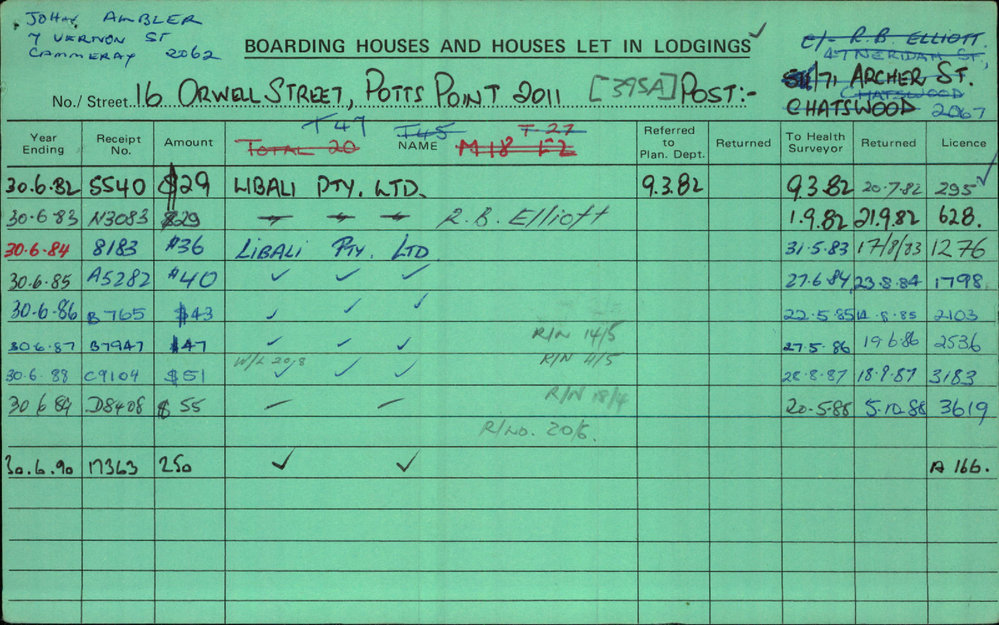 JOHN AMBLER
7 VERNON ST
CAMMERAY 2062
BOARDING HOUSES AND HOUSES LET IN LODGINGS ✓
C/- R.B. ELLIOTT.
ST,
71 ARCHER ST.
CHATSWOOD
CHATSWOOD 2067
No./Street 16 ORWELL STREET, POTTS POINT 2011 [395A] POST:-
T47 T45 T 27
TOTAL 20 M18 F2
Year Ending Receipt No. Amount NAME Referred to Plan. Dept. Returned To Health Surveyor Returned Licence
30.6.82 5540 $29 LIBALI PTY. LTD. 9.3.82 9.3.82 20.7.82 295 ✓
30.6.83 N3083 $29 " " " R.B. Elliott 1.9.82 21.9.82 628.
30.6.84 8183 $36 LIBALI PTY. LTD 31.5.83 17/8/83 1276
30.6.85 A5282 $40 ✓ ✓ ✓ 27.6.84 23.8.84 1798
30.6.86 B765 $43 ✓ ✓ ✓ 22.5.85 14.8.85 2103
R/N 14/5
30.6.87 B7947 $47 ✓ ✓ ✓ 27.5.86 19.6.86 2536
W/L 20/8 R/N 4/5
30.6.88 C9104 $51 ✓ ✓ ✓ 28.8.87 18.9.87 3183
R/N 18/4
30 6 89 D8408 $55 20.5.88 5.10.88 3619
R/NO. 20/6.
30.6.90 17363 250 ✓ ✓ A 166.